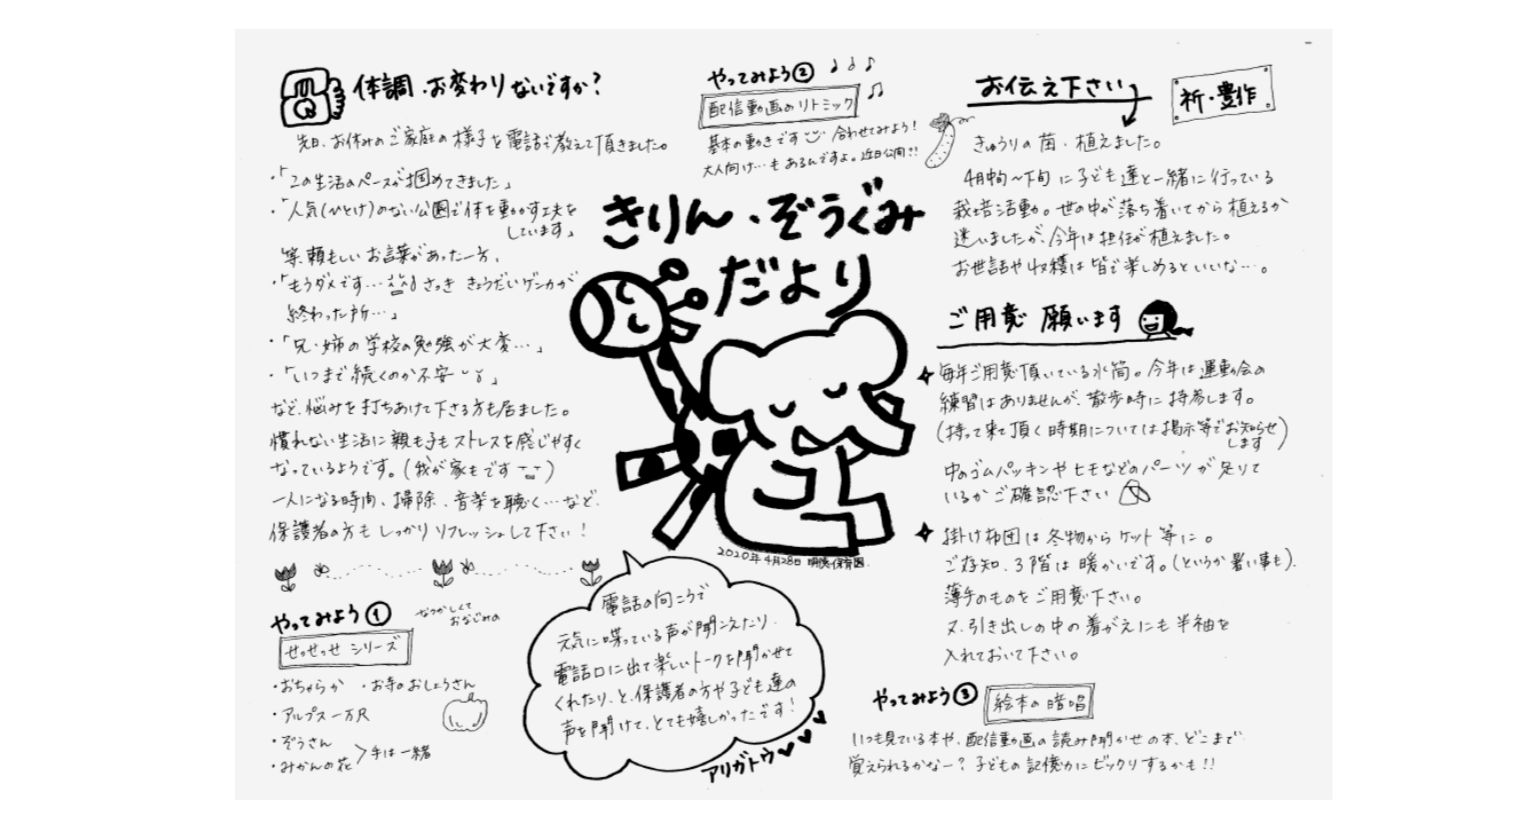 体調・お変わりないですか?
先日、お休みのご家庭の様子を電話で教えて頂きました。
・「この生活のペースが掴めてきました」
・「人気(ひとけ)のない公園で体を動かす工夫を
しています」
等、頼もしいお言葉があった一方、
・「もうダメです… さっき きょうだいゲンカが
終わった所…」
・「兄・姉の学校の勉強が大変…」
・「いつまで続くのか不安」
など、悩みを打ちあけて下さる方も居ました。
慣れない生活に親も子もストレスを感じやすく
なっているようです。(我が家もです)
一人になる時間、掃除、音楽を聴く…など、
保護者の方も しっかり リフレッシュして下さい!
やってみよう①
なつかしくて
おなじみの
せっせっせ シリーズ
・おちゃらか ・お寺のおしょうさん
・アルプス一万尺
・ぞうさん
・みかんの花
手は一緒
やってみよう②
配信動画のリトミック
基本の動きです 合わせてみよう!
大人向け…もあるんですよ。近日公開!!
きりん・ぞうぐみ
だより
2020年4月28日 保育園
電話の向こうで
元気に喋っている声が聞こえたり、
電話口に出て楽しいトークを聞かせて
くれたり、と、保護者の方や子ども達の
声を聞けて、とても嬉しかったです!
アリガトウ
お伝え下さい
祈・豊作
きゅうりの苗、植えました。
4月中旬〜下旬に子ども達と一緒に行っている
栽培活動。世の中が落ち着いてから植えるか
迷いましたが、今年は担任が植えました。
お世話や収穫は皆で楽しめるといいな…。
ご用意 願います
毎年ご用意頂いている水筒。今年は運動会の
練習はありませんが、散歩時に持参します。
(持って来て頂く時期については掲示等でお知らせ
します)
中のゴムパッキンやヒモなどのパーツが足りて
いるかご確認下さい
掛け布団は冬物からケット等に。
ご存知、3階は暖かいです。(というか暑い事も)、
薄手のものをご用意下さい。
又、引き出しの中の着がえにも半袖を
入れておいて下さい。
やってみよう③
絵本の暗唱
いつも見ている本や、配信動画の読み聞かせの本、どこまで
覚えられるかなー?子どもの記憶力にビックリするかも!!